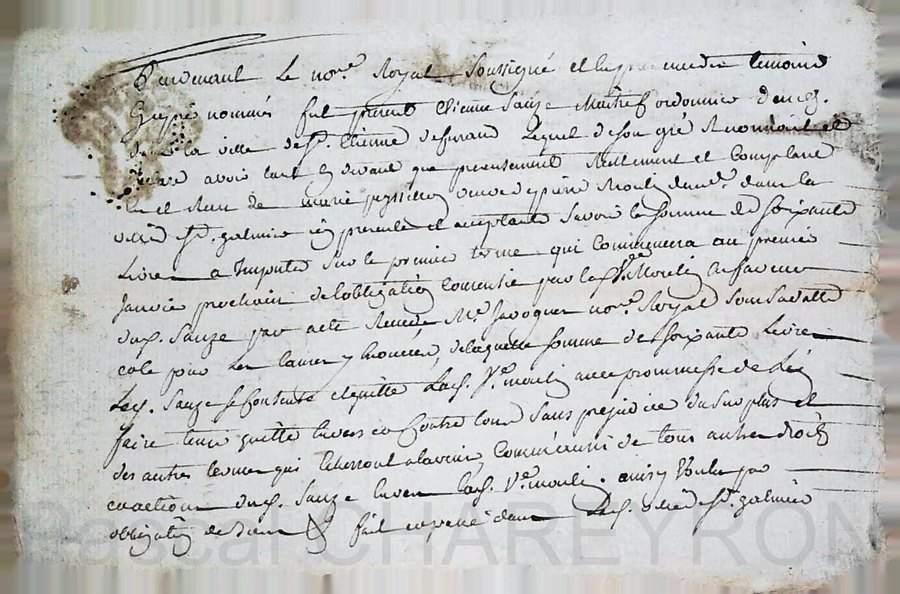 Pardevant Le nore. Royal Soussigné et les presences des temoins
nommés fut present Etienne Sauze Maitre Cordonnier demt.
dans la ville de st. Etienne defurand Lequel de son gré a reconnu et
avoir eu et receu avant que presentement reellement et Comptant
de marie veuve de pierre Moulin demte. dans la
ville st. galmier icy presente et acceptante Savoir la somme de Soixante
Livres a Imputer Sur le premier terme qui Commencera au premier
Janvier prochain de lobligation Consentie par lad. Ve. Moulin En faveur
dud. Sauze par acte Receu Me. Javogues nore. Royal Sous Sa datte
pour Les causes y Enoncées, de laquelle Somme de Soixante Livres
Led. Sauze se Contente et quitte Lad. Ve. moulin avec promesse de L'en
faire tenir quitte Envers et Contre tous Sans prejudice du Surplus et
des autres termes qui Echerront a lavenir Comme aussi de tous autres droits
et actions dud. Sauze Envers lad. Ve. moulin. ainsy Voulu par
obligation de fait et passé dans Lad. ville de st. galmier
Pascal CHAREYRON